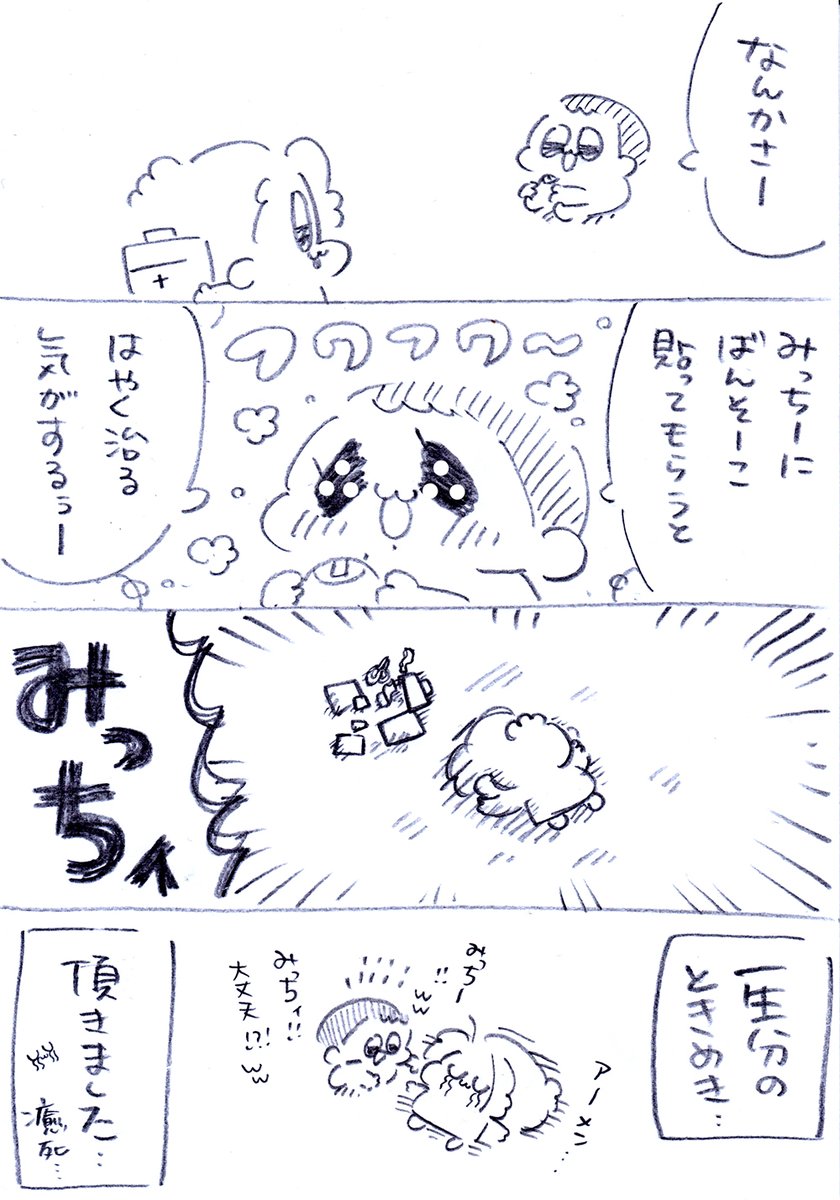 なんかさー
みっちーに
ばんそーこ
貼ってもらうと
はやく治る
気がするぅー
みっちィ
一生分の
ときめき…
アーメン…
みっちー
!!ww
みっちィ!!
大丈夫!?!ww
頂きました…
癒死…